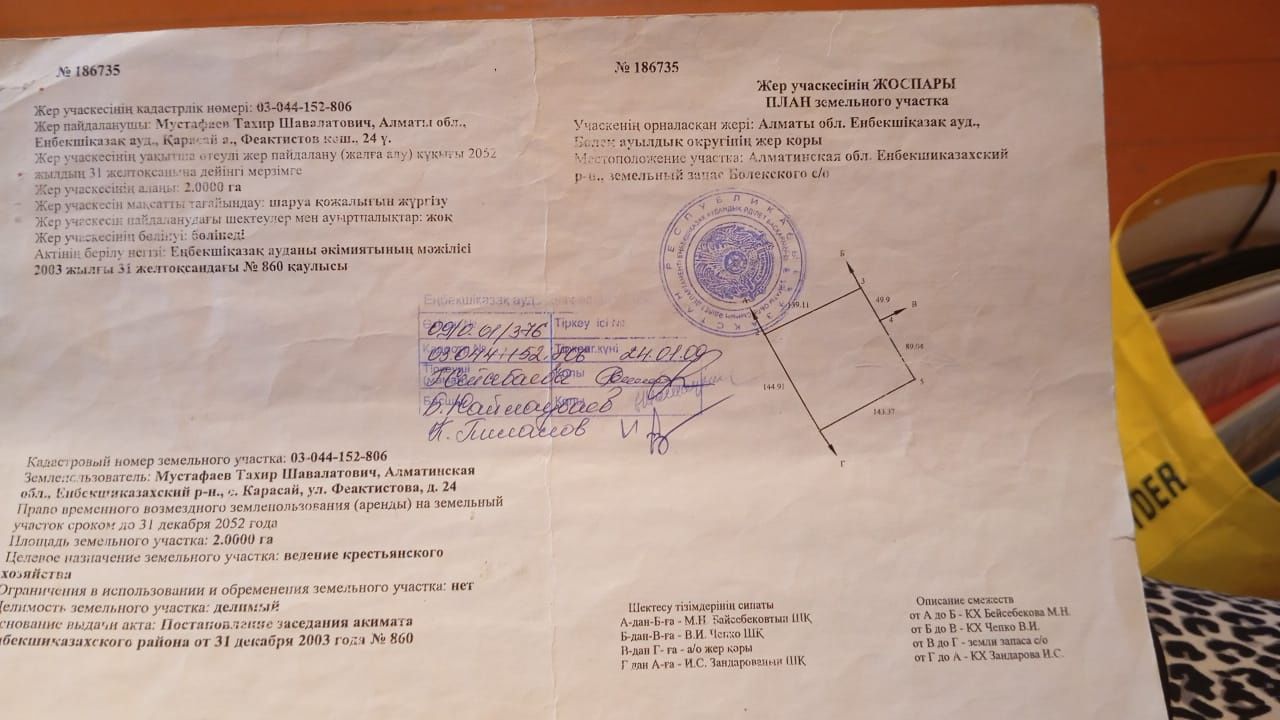 № 186735
Жер учаскесінің кадастрлік нөмері: 03-044-152-806
Жер пайдаланушы: Мустафаев Тахир Шавалатович, Алматы обл.,
Еңбекшіқазақ ауд., Қарасай а., Феактистов көш., 24 ү.
Жер учаскесінің уақытша өтеулі жер пайдалану (жалға алу) құқығы 2052
жылдың 31 желтоқсанына дейінгі мерзімге
Жер учаскесінің алаңы: 2.0000 га
Жер учаскесін мақсатты тағайындау: шаруа қожалығын жүргізу
Жер учаскесін пайдаланудағы шектеулер мен ауыртпалықтар: жоқ
Жер учаскесінің бөлінуі: бөлінеді
Актінің берілу негізі: Еңбекшіқазақ ауданы әкімиятының мәжілісі
2003 жылғы 31 желтоқсандағы № 860 қаулысы
Еңбекшіқазақ ауд.
Тіркеу ісі №
24.01.09
Кадастровый номер земельного участка: 03-044-152-806
Землепользователь: Мустафаев Тахир Шавалатович, Алматинская
обл., Енбекшиказахский р-н., с. Карасай, ул. Феактистова, д. 24
Право временного возмездного землепользования (аренды) на земельный
участок сроком до 31 декабря 2052 года
Площадь земельного участка: 2.0000 га
Целевое назначение земельного участка: ведение крестьянского
хозяйства
Ограничения в использовании и обременения земельного участка: нет
Делимость земельного участка: делимый
снование выдачи акта: Постановление заседания акимата
нбекшиказахского района от 31 декабря 2003 года № 860
№ 186735
Жер учаскесінің ЖОСПАРЫ
ПЛАН земельного участка
Учаскенің орналасқан жері: Алматы обл. Енбекшіқазақ ауд.,
Бөлек ауылдық округінің жер қоры
Местоположение участка: Алматинская обл. Енбекшиказахский
р-н., земельный запас Болекского с/о
Б
3
139.11
49.9
В
4
89.04
5
144.91
143.37
Г
Шектесу тізімдерінің сипаты
А-дан-Б-ға - М.Н. Байсебековтың ШҚ
Б-дан-В-ға - В.И. Чепко ШҚ
В-дан Г- ға - а/о жер қоры
Г дан А-ға - И.С. Зандарованың ШҚ
Описание смежеств
от А до Б - КХ Бейсебекова М.Н.
от Б до В - КХ Чепко В.И.
от В до Г - земли запаса с/о
от Г до А - КХ Зандарова И.С.